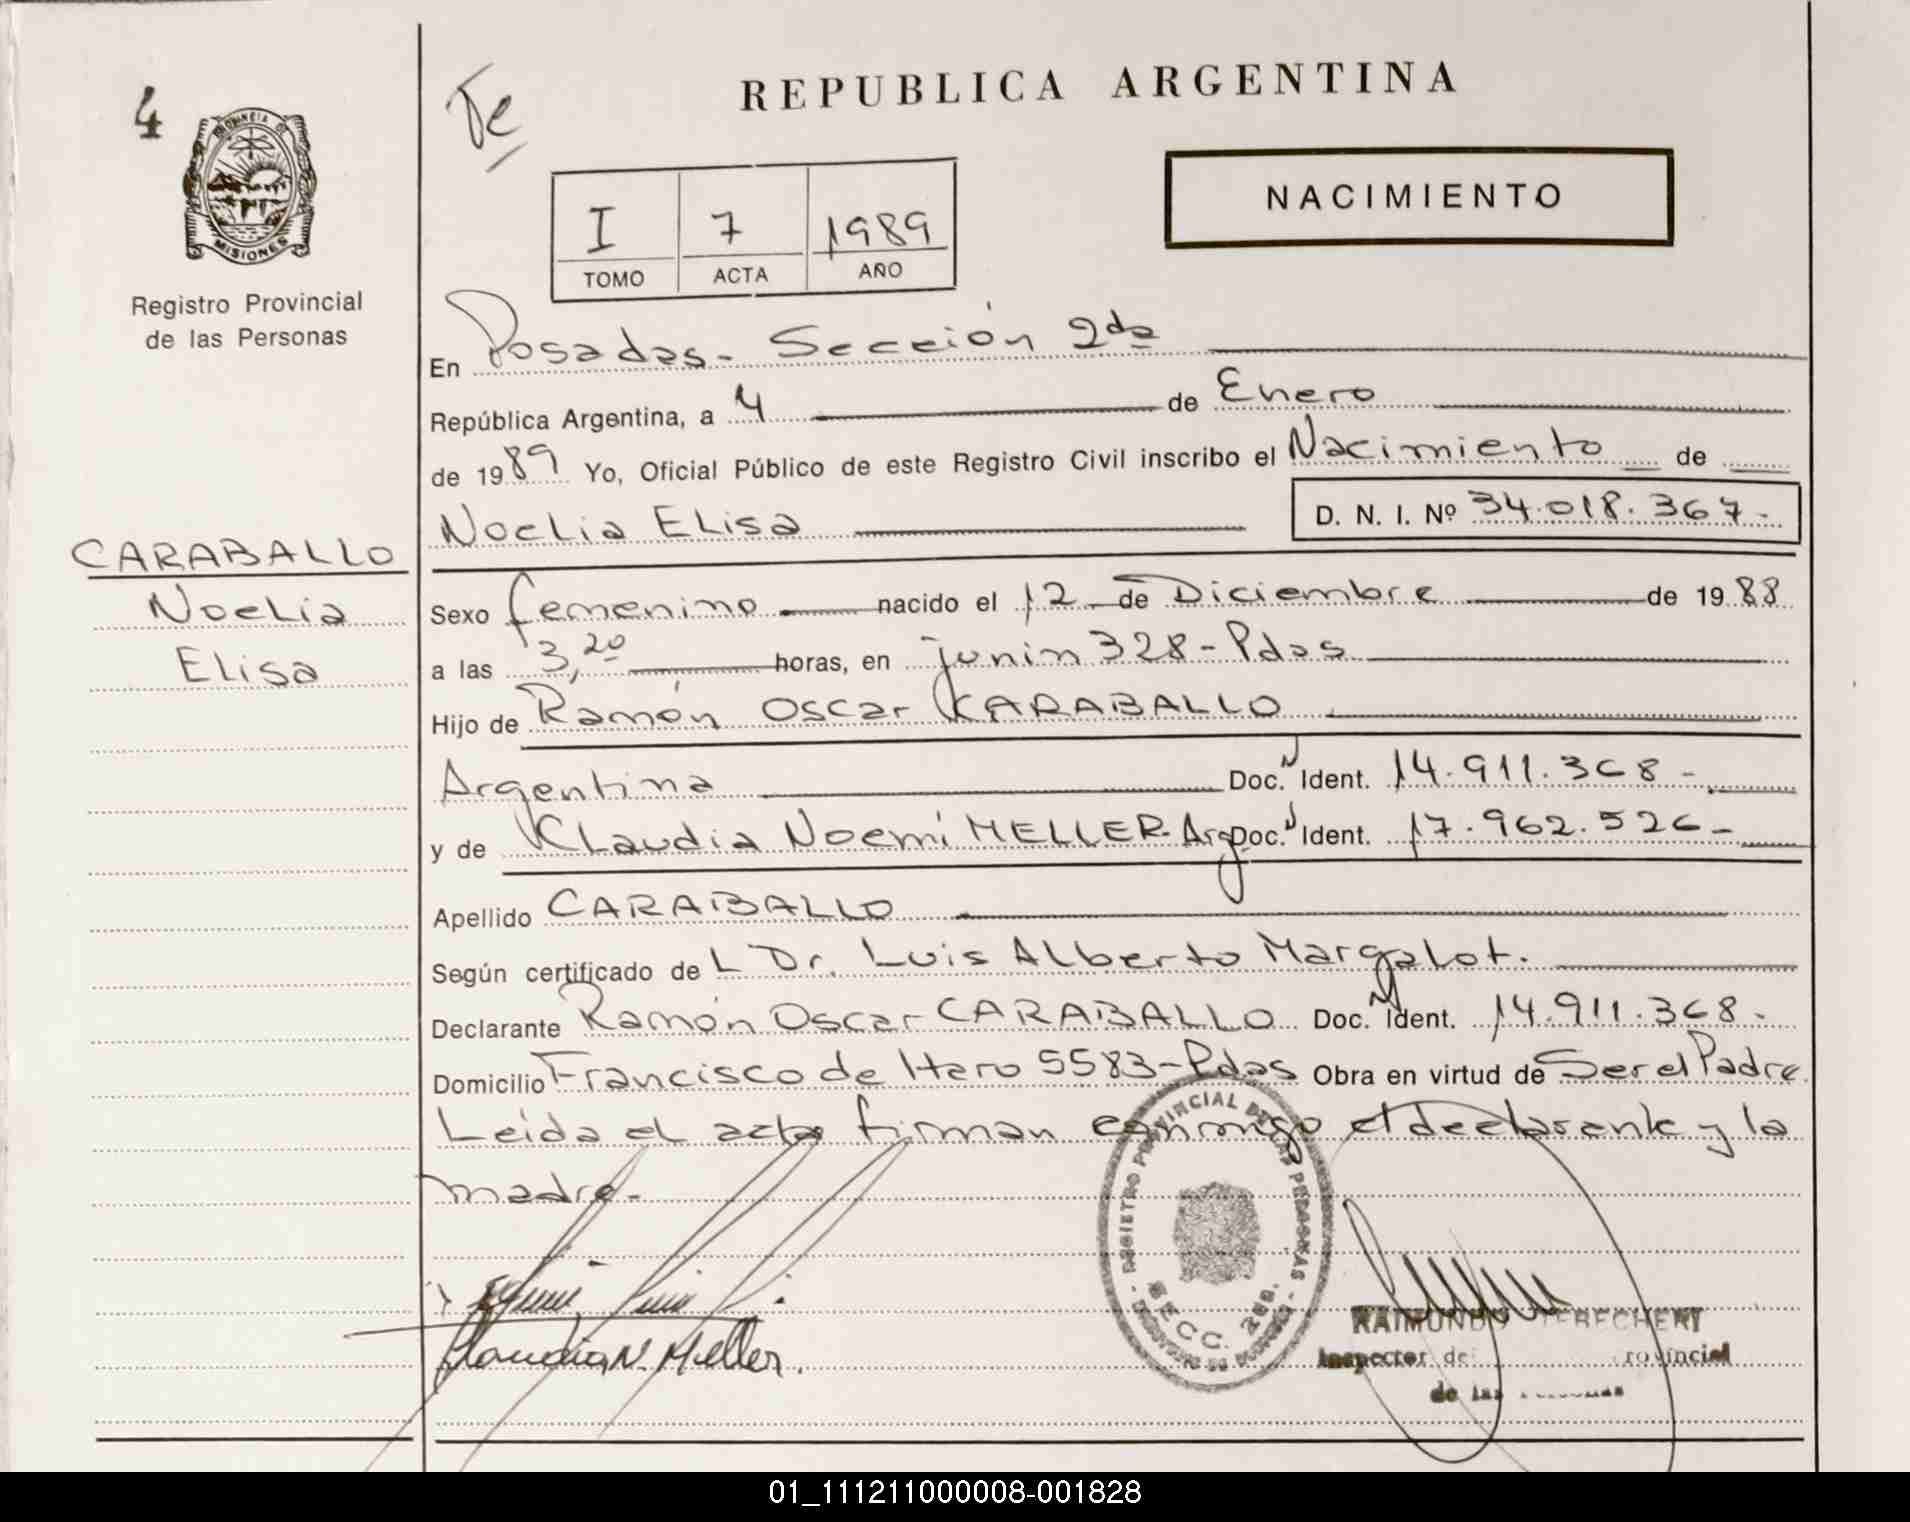 4
Te
REPUBLICA ARGENTINA
PROVINCIA DE
MISIONES
Registro Provincial
de las Personas
NACIMIENTO
I 7 1989
TOMO ACTA AÑO
En Posadas - Sección 2da
República Argentina, a 4 de Enero
de 1989 Yo, Oficial Público de este Registro Civil inscribo el Nacimiento de
Noelia Elisa D. N. I. Nº 34.018.367.-
CARABALLO
Noelia
Elisa
Sexo femenino nacido el 12 de Diciembre de 1988
a las 3,20 horas, en junin 328 - Pdas
Hijo de Ramón Oscar CARABALLO
Argentina Doc. N Ident. 14.911.368 -
y de Claudia Noemí MELLER - Arg Doc. N Ident. 17.962.526 -
Apellido CARABALLO
Según certificado de L Dr. Luis Alberto Margalot.
Declarante Ramón Oscar CARABALLO Doc. N Ident. 14.911.368 -
Domicilio Francisco de Haro 5583 - Pdas Obra en virtud de Ser el Padre
Leida el acta firman conmigo el declarante y la
madre -
Claudia N. Meller.
REGISTRO PROVINCIAL DE LAS PERSONAS
SECC. 2da.
RAIMUNDO
Inspector del rovincial
de las
01_111211000008-001828